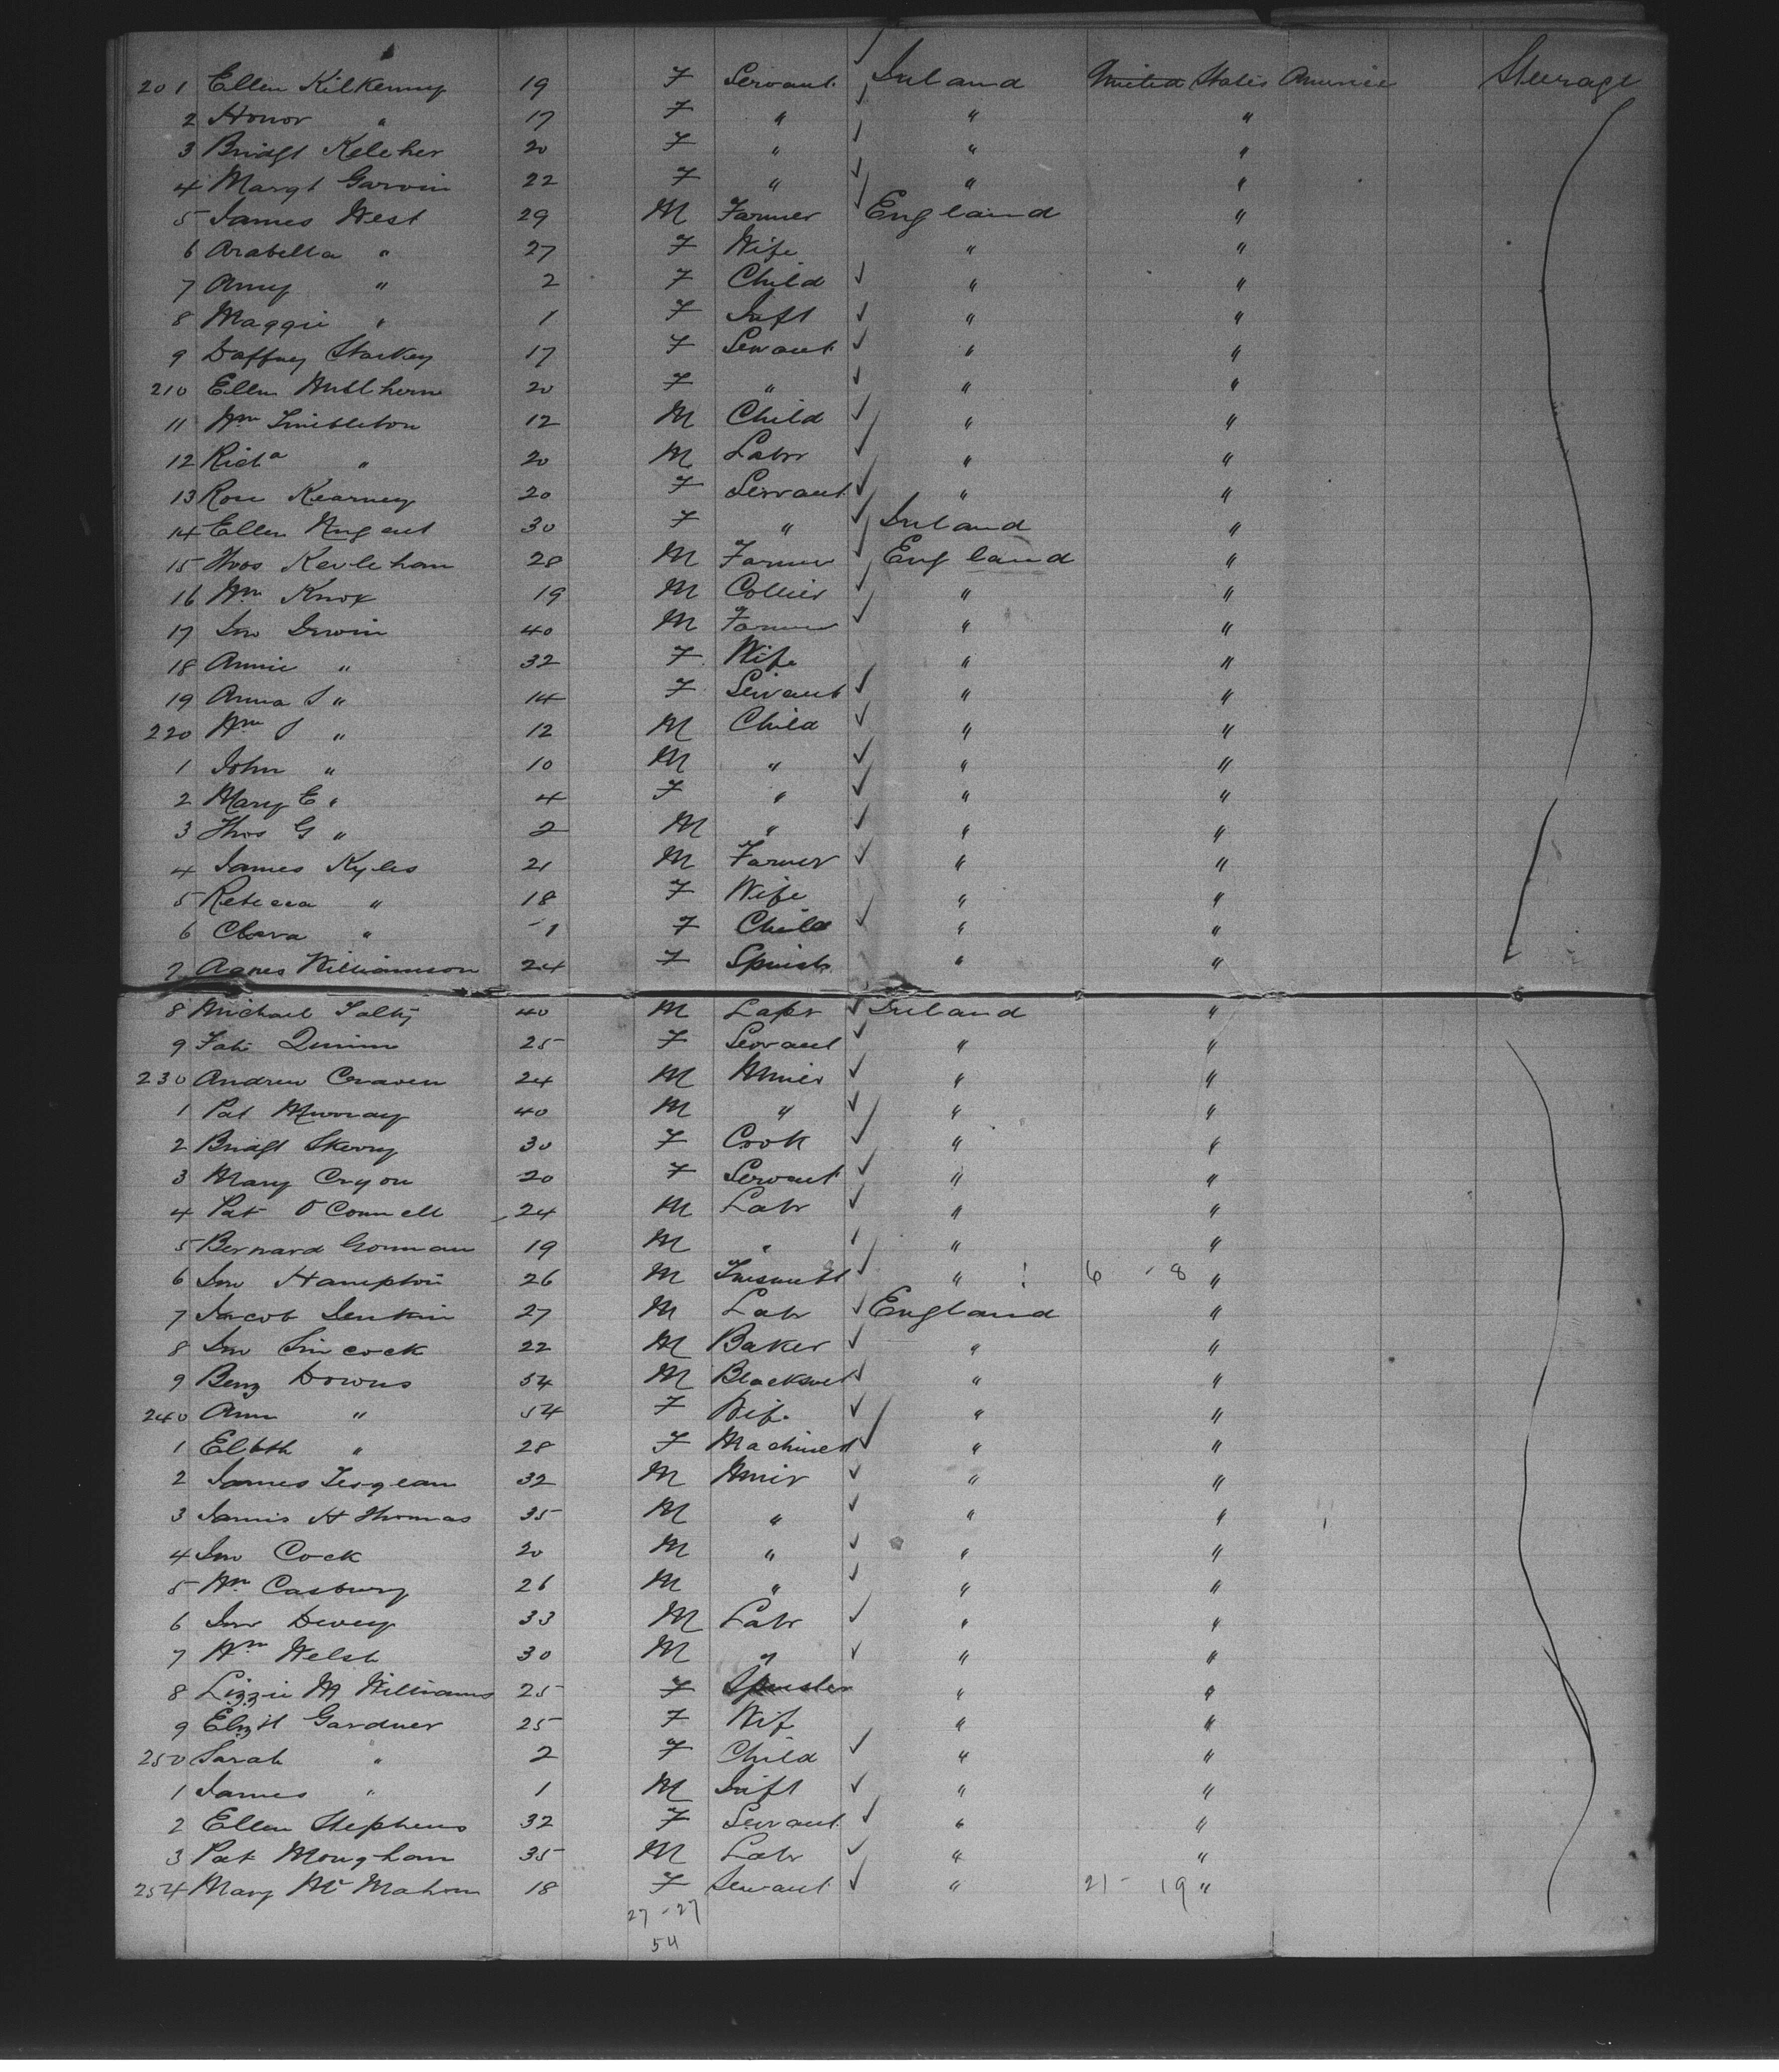 201 Ellen Kilkenny 19 F Servant Ireland United States America Steerage
2 Honor " 17 F " " "
3 Bridgt Keleher 20 F " " "
4 Margt Garvin 22 F " " "
5 James West 29 M Farmer England "
6 Arabella " 27 F Wife " "
7 Amy " 2 F Child " "
8 Maggie " 1 F Inft " "
9 Daffney Starkey 17 F Servant " "
210 Ellen 20 F " " "
11 Wm 12 M Child " "
12 Richd " 20 M Labr " "
13 Rose Kearney 20 F Servant " "
14 Ellen Nugent 30 F " Ireland "
15 Thos 28 M Farmer England "
16 Wm Knox 19 M Collier " "
17 Jno Irwin 40 M Farmer " "
18 Annie " 32 F Wife " "
19 Anna J " 14 F Servant " "
220 Wm J " 12 M Child " "
1 John " 10 M " " "
2 Mary E " 4 F " " "
3 Thos G " 2 M " " "
4 James Kyles 21 M Farmer " "
5 Rebecca " 18 F Wife " "
6 Clara " 1 F Child " "
7 Agnes Williamson 24 F Spinstr " "
8 Michael 40 M Labr Ireland "
9 Quinn 25 F Servant " "
230 Andrew Craven 24 M Miner " "
1 Pat Murray 40 M " " "
2 Bridgt Skerry 30 F Cook " "
3 Mary Cryon 20 F Servant " "
4 Pat O'Connell 24 M Labr " "
5 Bernard Gorman 19 M " " "
6 Jno Hampton 26 M Tinsmith " 6 - 8 "
7 Jacob Jenkin 27 M Labr England "
8 Jno Simcock 22 M Baker " "
9 Benj Downs 54 M Blacksmt " "
240 Ann " 54 F Wife " "
1 Elbth " 28 F Machinest " "
2 James 32 M Miner " "
3 James H Thomas 35 M " " "
4 Jno Cock 20 M " " "
5 Wm Casbury 26 M " " "
6 Jno Devey 33 M Labr " "
7 Wm Welsh 30 M " " "
8 Lizzie M Williams 25 F Spinster " "
9 Elizth Gardner 25 F Wif " "
250 Sarah " 2 F Child " "
1 James " 1 M Inft " "
2 Ellen Stephens 32 F Servant " "
3 Pat Moughan 35 M Labr " "
254 Mary McMahon 18 F Servant " 21 - 19 "
27 - 27
54